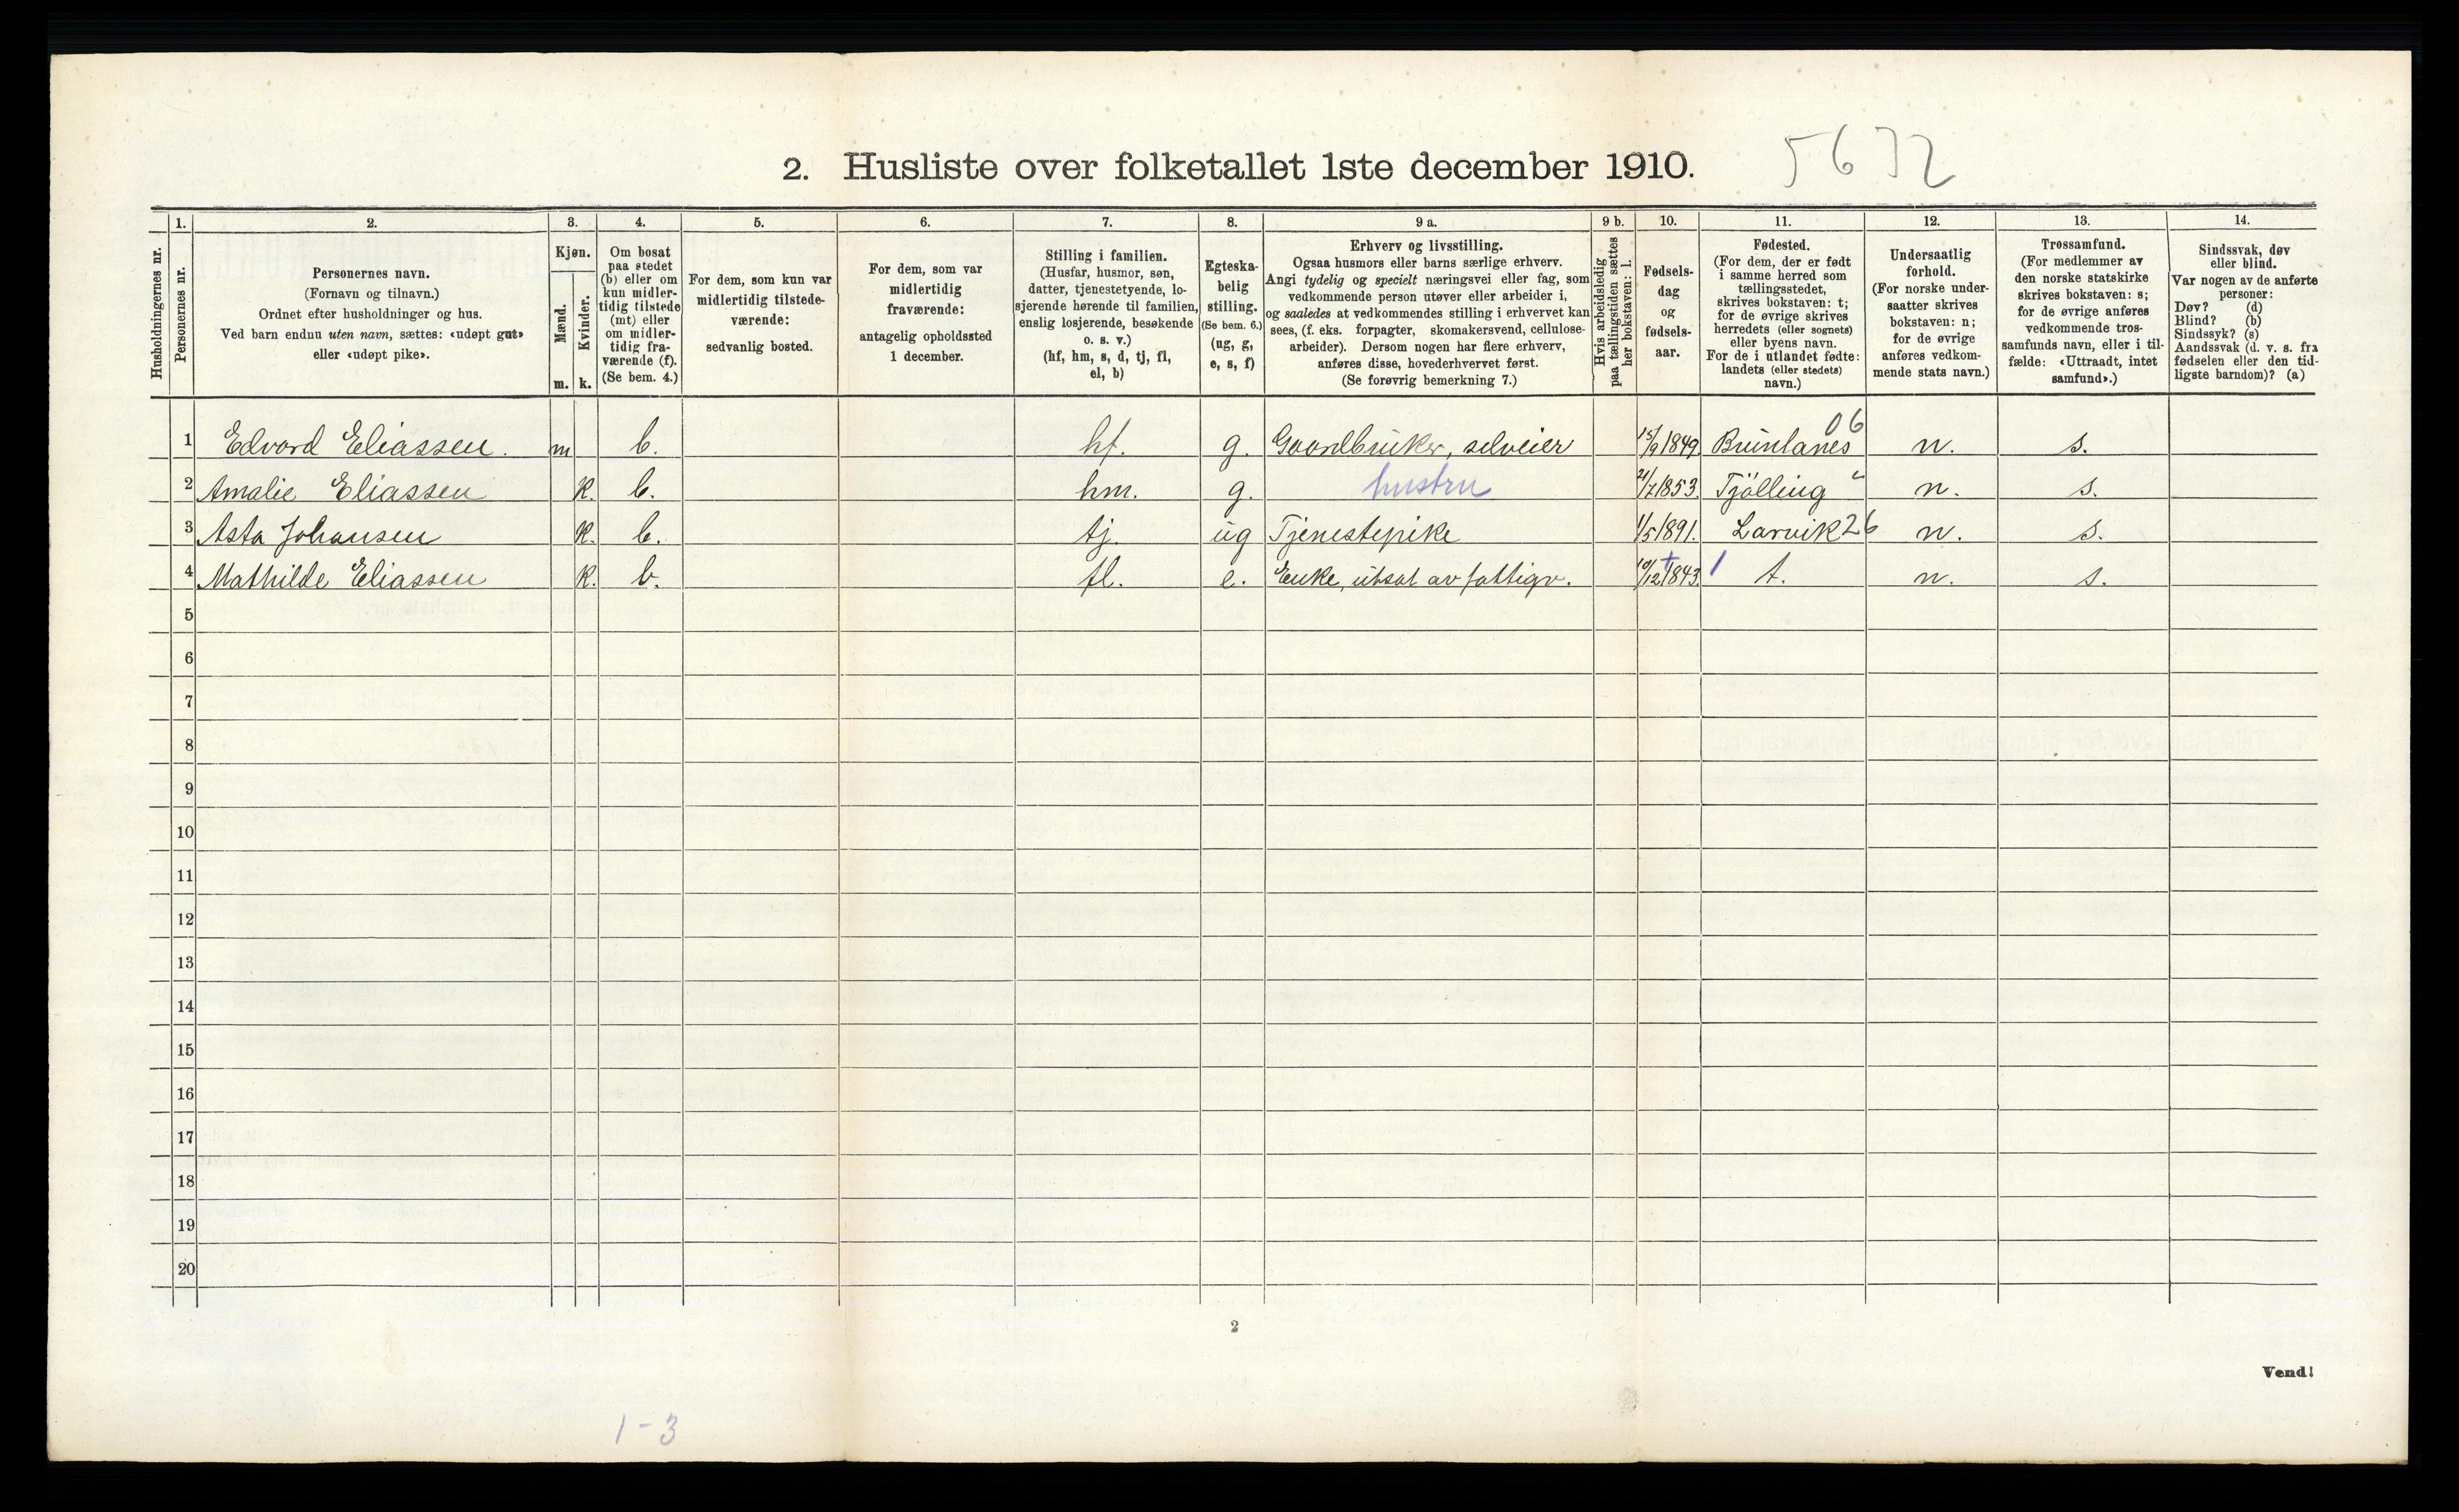 2. Husliste over folketallet 1ste december 1910. 5632
1. 2. 3. 4. 5. 6. 7. 8. 9 a. 9 b. 10. 11. 12. 13. 14.
Husholdningernes nr.
Personernes nr.
Personernes navn.
(Fornavn og tilnavn.)
Ordnet efter husholdninger og hus.
Ved barn endnu uten navn, sættes: «udøpt gut»
eller «udøpt pike».
Kjøn.
Mænd.
Kvinder.
m. k.
Om bosat
paa stedet
(b) eller om
kun midler-
tidig tilstede
(mt) eller
om midler-
tidig fra-
værende (f).
(Se bem. 4.)
For dem, som kun var
midlertidig tilstede-
værende:
sedvanlig bosted.
For dem, som var
midlertidig
fraværende:
antagelig opholdssted
1 december.
Stilling i familien.
(Husfar, husmor, søn,
datter, tjenestetyende, lo-
sjerende hørende til familien,
enslig losjerende, besøkende
o. s. v.)
(hf, hm, s, d, tj, fl,
el, b)
Egteska-
belig
stilling.
(Se bem. 6.)
(ug, g,
e, s, f)
Erhverv og livsstilling.
Ogsaa husmors eller barns særlige erhverv.
Angi tydelig og specielt næringsvei eller fag, som
vedkommende person utøver eller arbeider i,
og saaledes at vedkommendes stilling i erhvervet kan
sees, (f. eks. forpagter, skomakersvend, cellulose-
arbeider). Dersom nogen har flere erhverv,
anføres disse, hovederhvervet først.
(Se forøvrig bemerkning 7.)
Hvis arbeidsledig
paa tællingstiden sættes
her bokstaven: l.
Fødsels-
dag
og
fødsels-
aar.
Fødested.
(For dem, der er født
i samme herred som
tællingsstedet,
skrives bokstaven: t;
for de øvrige skrives
herredets (eller sognets)
eller byens navn.
For de i utlandet fødte:
landets (eller stedets)
navn.)
Undersaatlig
forhold.
(For norske under-
saatter skrives
bokstaven: n;
for de øvrige
anføres vedkom-
mende stats navn.)
Trossamfund.
(For medlemmer av
den norske statskirke
skrives bokstaven: s;
for de øvrige anføres
vedkommende tros-
samfunds navn, eller i til-
fælde: «Uttraadt, intet
samfund».)
Sindssvak, døv
eller blind.
Var nogen av de anførte
personer:
Døv? (d)
Blind? (b)
Sindssyk? (s)
Aandssvak (d. v. s. fra
fødselen eller den tid-
ligste barndom)? (a)
1 Edvard Eliassen. m b. hf. g. Gaardbruker, selveier 15/9 1849. Brunlanes 06 n. s.
2 Amalie Eliassen k. b. hm. g. hustru 21/7 1853. Tjölling " n. s.
3 Asta Johansen k. b. tj. ug Tjenestepike 1/5 1891. Larvik 26 n. s.
4 Mathilde Eliassen k. b. fl. e. Enke, utsat av fattigv. 10/12 1843. t. n. s.
5
6
7
8
9
10
11
12
13
14
15
16
17
18
19
20
2
Vend!
1-3